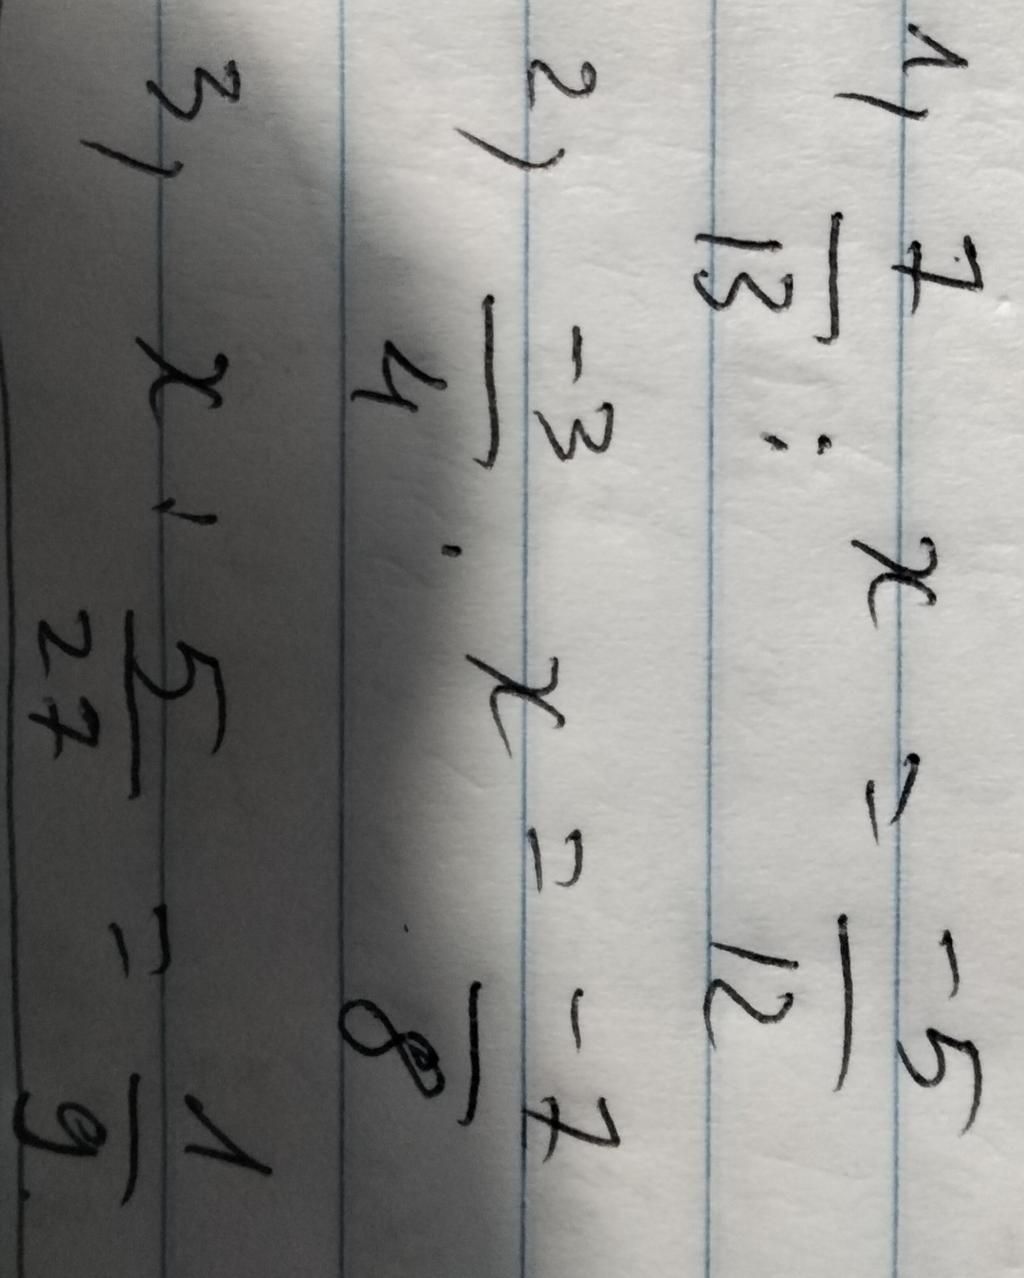 1) 7/13 : x = -5/12
2) -3/4 . x = -7/8
3) x : 5/27 = 1/9